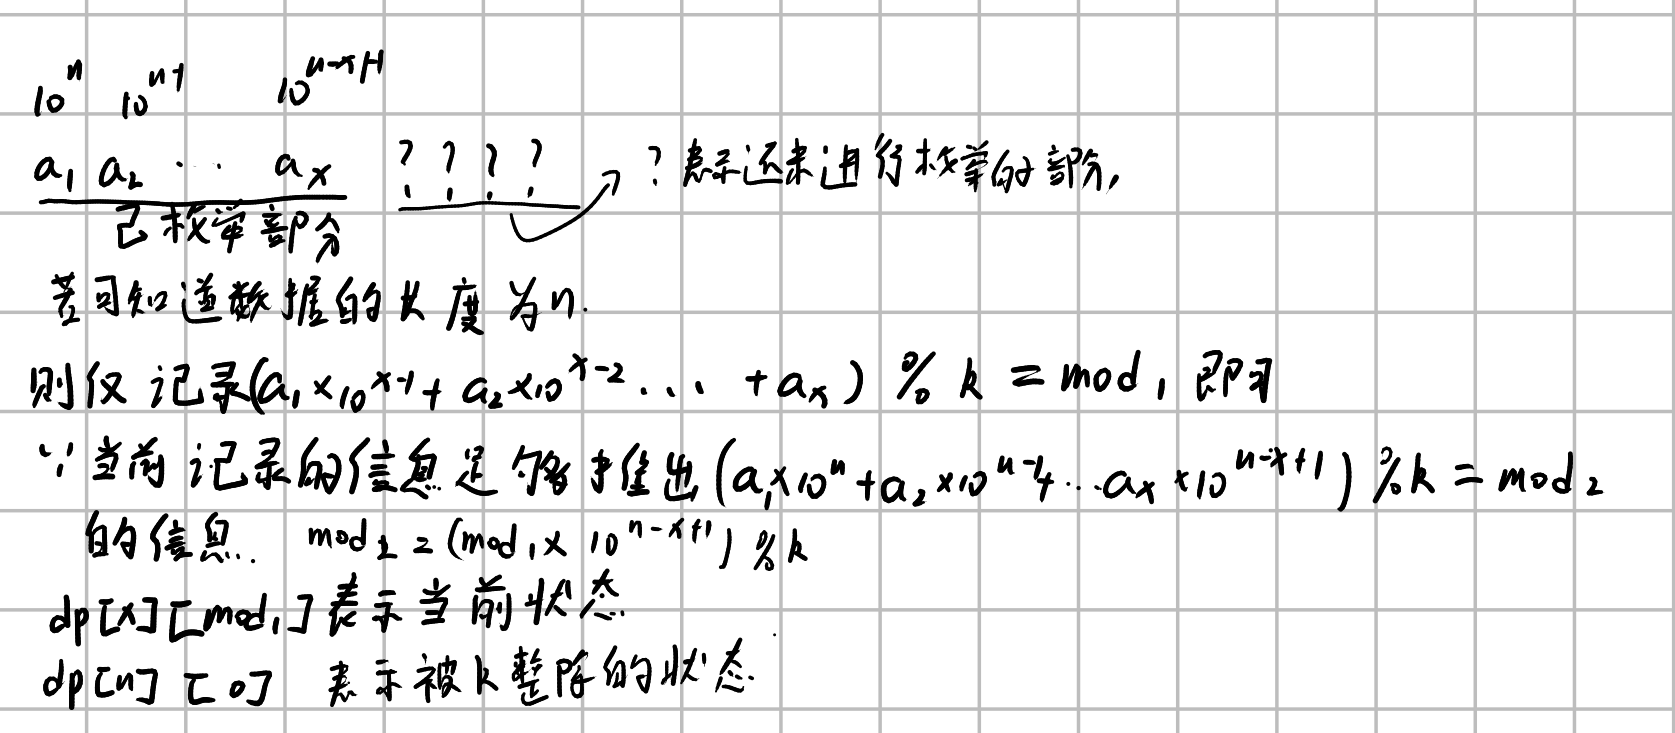 10^n 10^{n-1} 10^{n-x+1}
a₁ a₂ ... aₓ ? ? ? ? ?表示还未进行枚举的部分,
已枚举部分
若可知道数据的长度为n.
则仅记录(a₁×10^{x-1}+a₂×10^{x-2}...+aₓ) % k = mod₁ 即可
∵当前记录的信息足够推出(a₁×10^n+a₂×10^{n-1}+...aₓ×10^{n-x+1}) % k = mod₂
的信息. mod₂=(mod₁×10^{n-x+1}) % k
dp[x][mod₁]表示当前状态.
dp[n][0] 表示被k整除的状态.